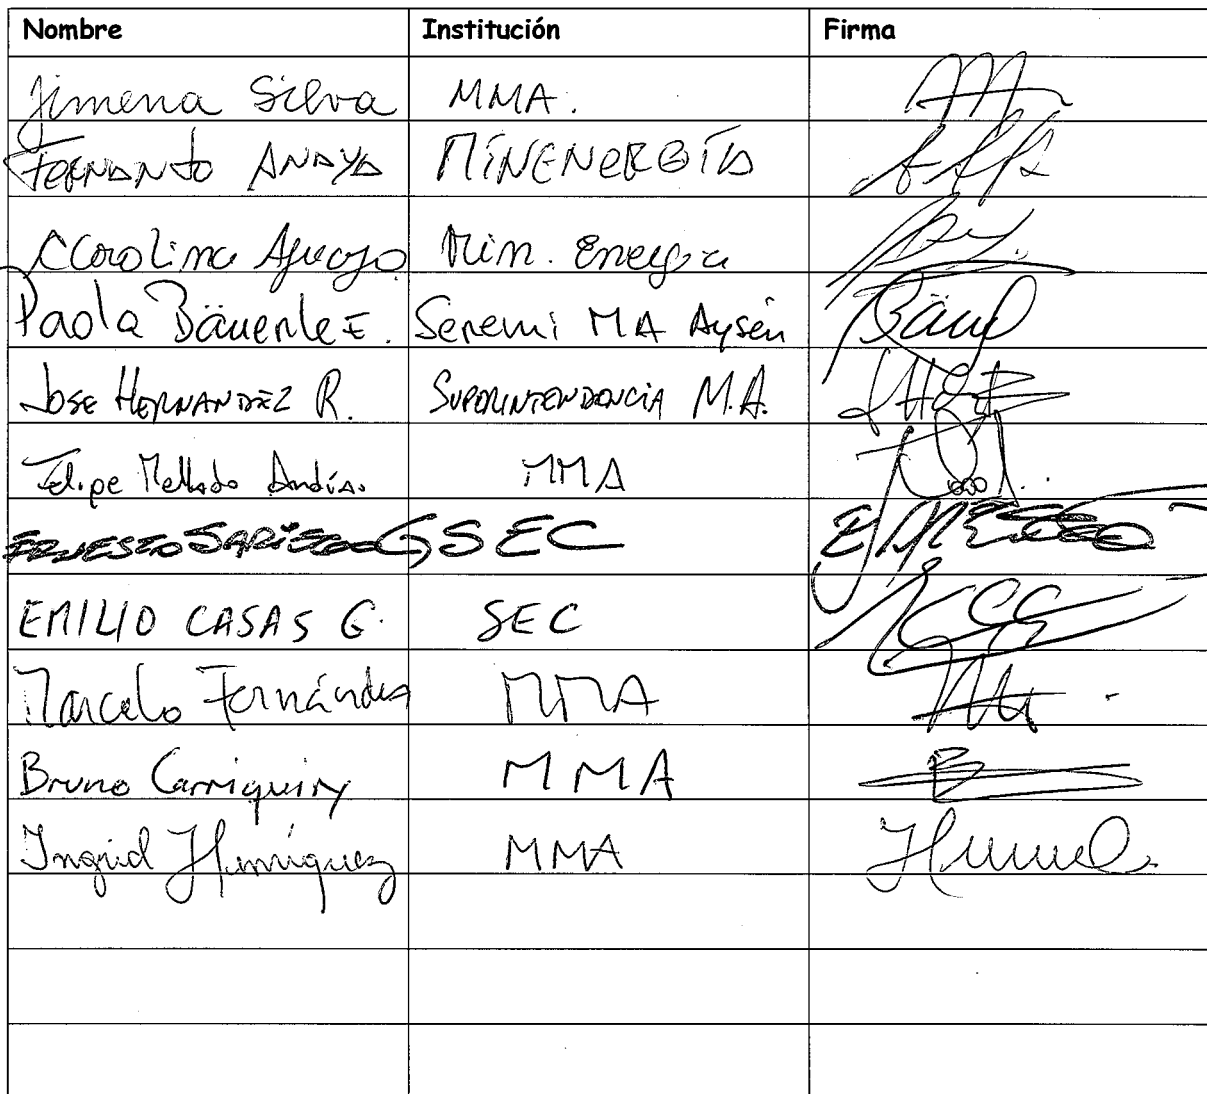 Nombre Institución Firma
Jimena Silva MMA.
FERNANDO ANAYA MINENERGÍA
Carolina Min. Energía
Paola Bäuerle E. Seremi MA Aysén Bäuerl
JOSE HERNANDEZ R. SUPERINTENDENCIA M.A.
Felipe Mellado Andías. MMA
ERNESTO SARIEGO G SEC
EMILIO CASAS G. SEC
Marcelo Fernández MMA
Bruno Carriquiry MMA
Ingrid Henríquez MMA